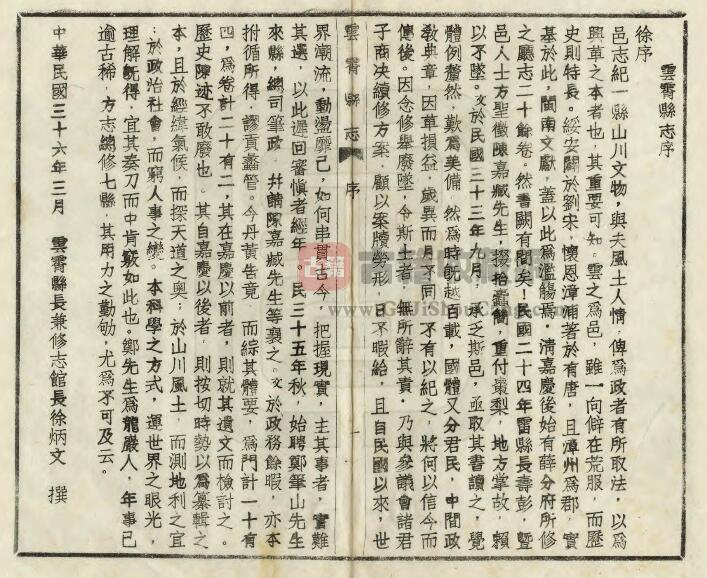 雲霄縣志序
徐序
邑志紀一縣山川文物，與夫風土人情，俾為政者有所取法，以為
興革之本者也，其重要可知。雲之為邑，雖一向僻在荒服，而歷
史則特長。綏安闢於劉宋，懷恩漳浦著於有唐，且漳州為郡，實
基於此，閩南文獻，蓋以此為濫觴焉。清嘉慶後始有薛分府所修
之廳志二十餘卷。然書闕有間矣！民國二十四年雷縣長壽彭，暨
邑人士方聖徵陳嘉臧先生，掇拾蠹簡，重付棗梨，地方掌故，賴
以不墜。文於民國三十三年八月，承乏斯邑，亟取其書讀之，覺
體例釐然，歎為美備，然為時旣越百載，國體又分君民，中間政
敎典章，因革損益，歲異而月不同，不有以紀之，將何以信今而
傳後。因念修舉廢墜，令斯土者，無所辭其責，乃與參議會諸君
子商决續修方案，顧以案牘勞形，日不暇給，且自民國以來，世
雲霄縣志
序
一
界潮流，動盪靡已，如何串貫古今，把握現實，主其事者，實難
其選，以此遲回審愼者經年。民三十五年秋，始聘鄭筆山先生
來縣，總司筆政，幷請陳嘉臧先生等襄之。文於政務餘暇，亦本
拊循所得，謬貢蠡管。今丹黃告竟，而綜其體要，為門計一十有
四，為卷計二十有二，其在嘉慶以前者，則就其遺文而檢討之。
歷史陳迹不敢廢也。其自嘉慶以後者，則按切時勢以為纂輯之
本，且於經緯氣候，而探天道之奥；於山川風土，而測地利之宜
；於政治社會，而窮人事之變。本科學之方式，運世界之眼光，
理解旣得，宜其奏刀而中肯綮如此也。鄭先生為龍巖人，年事已
逾古稀，方志總修七縣，其用力之勤劬，尤為不可及云。
中華民國三十六年三月　雲霄縣長兼修志館長徐炳文　撰
古籍
GuJiShouCang.Com